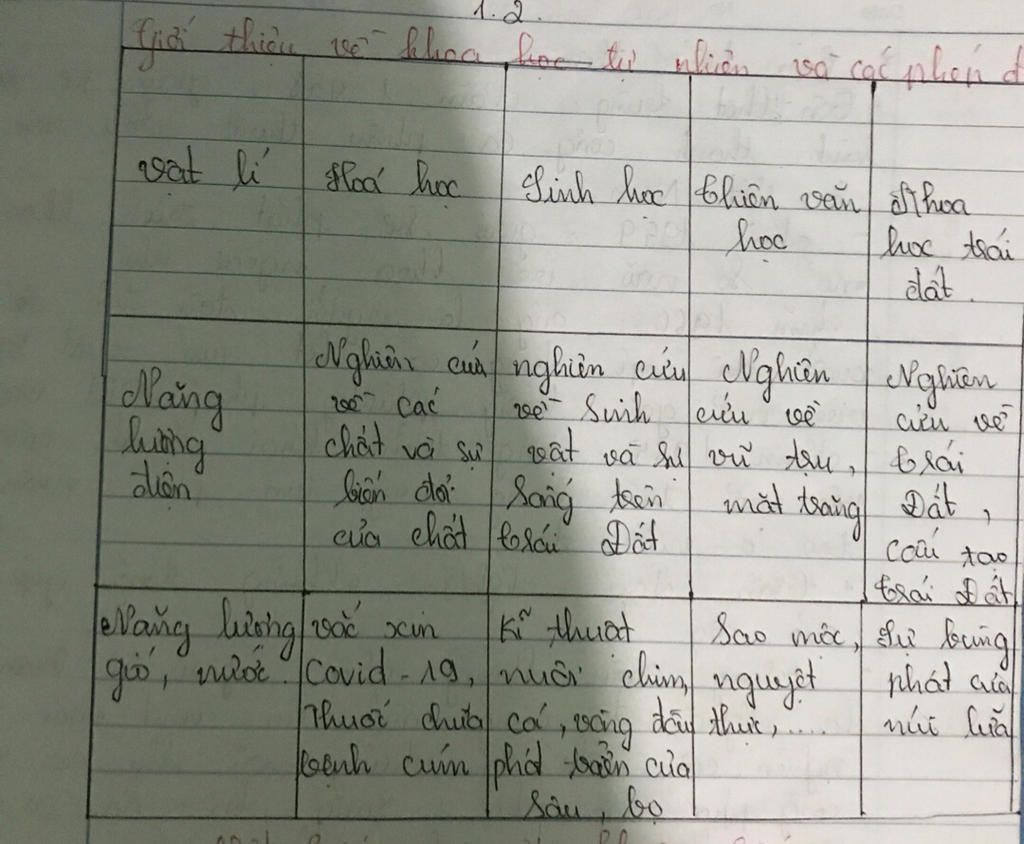 1.2.
Giới thiệu về khoa học tự nhiên và các phép đ
Vật lí
Hoá học
Sinh học
Thiên văn
học
Khoa
học trái
đất.
Năng
lượng
điện
Nghiên cứu
về các
chất và sự
biến đổi
của chất
nghiên cứu
về sinh
vật và sự
sống trên
trái Đất
Nghiên
cứu về
vũ trụ,
mặt trăng
Nghiên
cứu về
trái
Đất,
cấu tạo
trái Đất
Năng lượng
gió, nước.
vắc xin
Covid-19,
thuốc chữa
bệnh cúm
Kĩ thuật
nuôi chim,
cá, vòng đời
phát triển của
sâu, bọ
Sao mộc,
nguyệt
thực,....
sự bùng
phát của
núi lửa